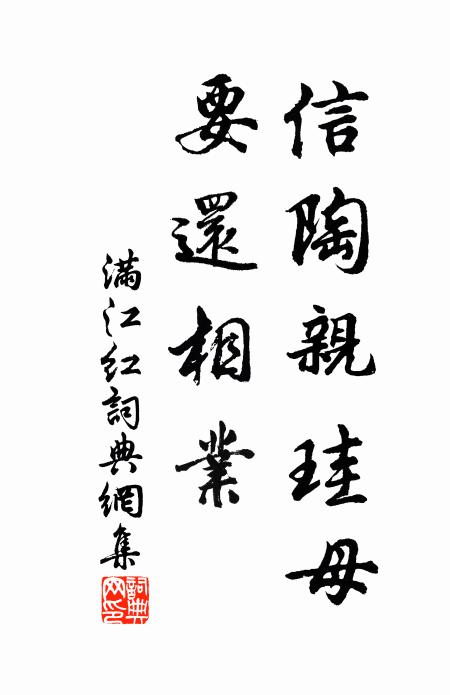 信陶親珪母
要還相業
滿江紅詞典網集
詞典
网印